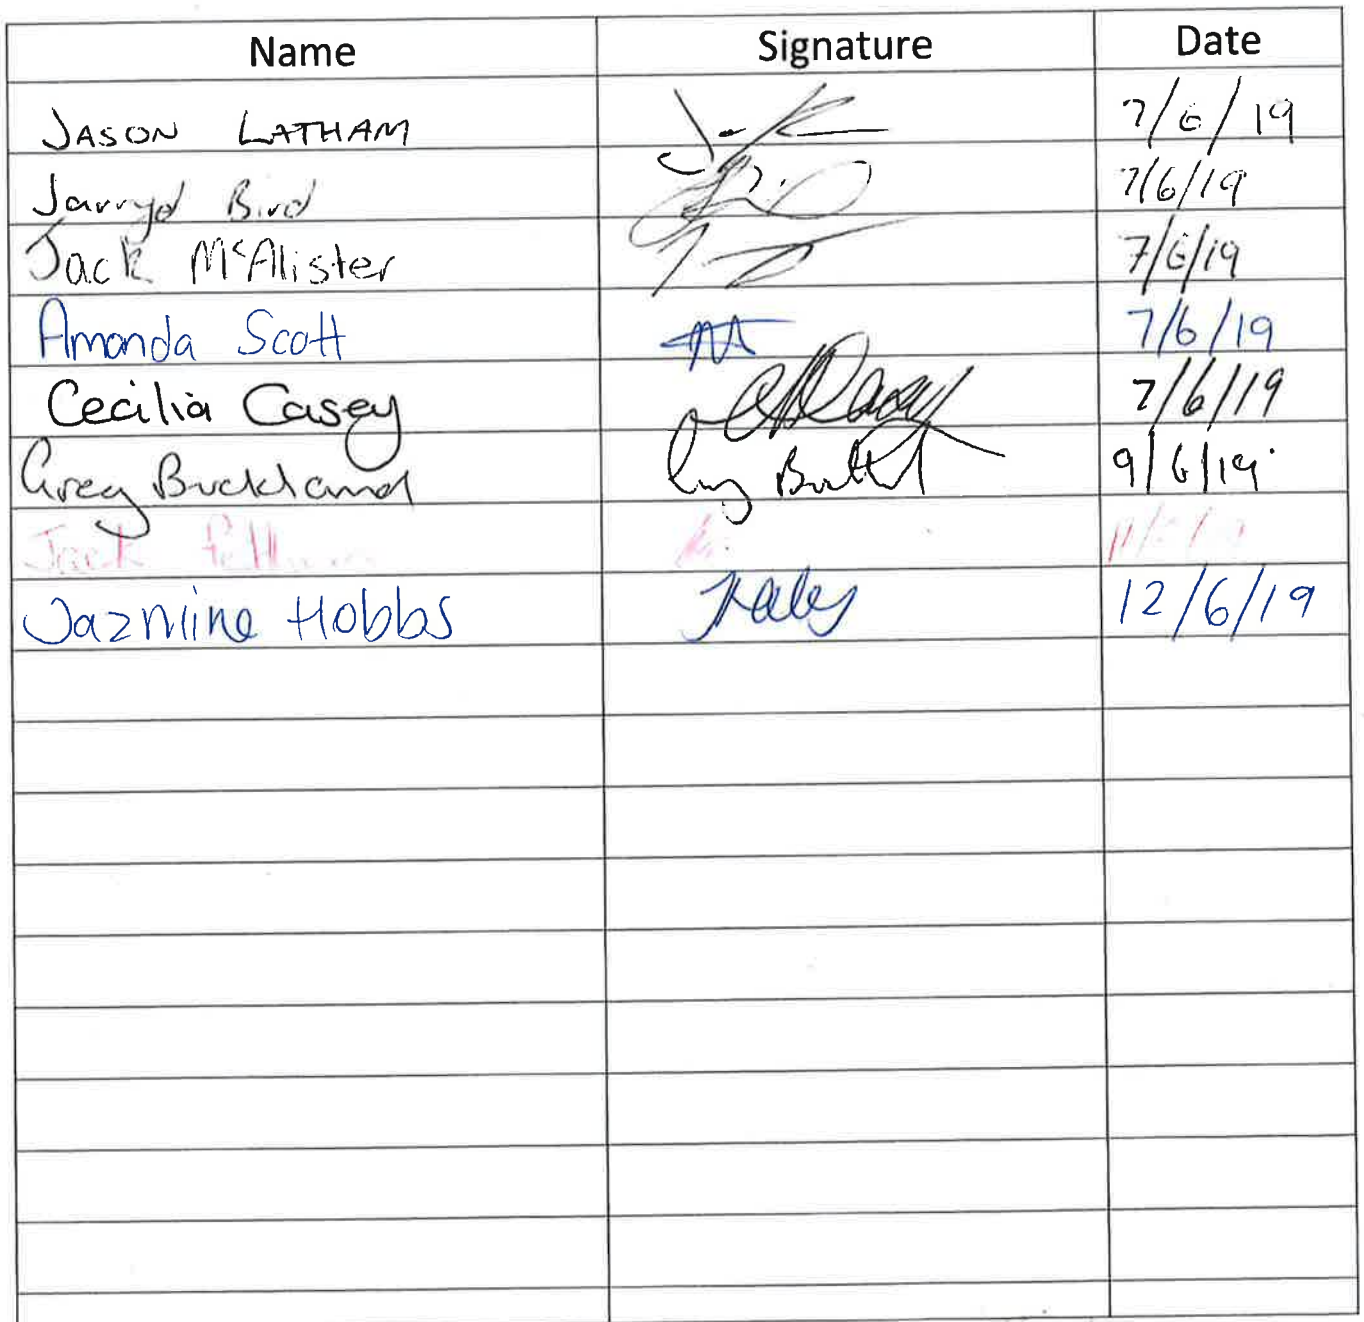 Name Signature Date
JASON LATHAM 7/6/19
Jarryd Bird 7/6/19
Jack McAlister 7/6/19
Amanda Scott 7/6/19
Cecilia Casey 7/6/19
Greg Buckland 9/6/19
Jack
Jazmine Hobbs 12/6/19